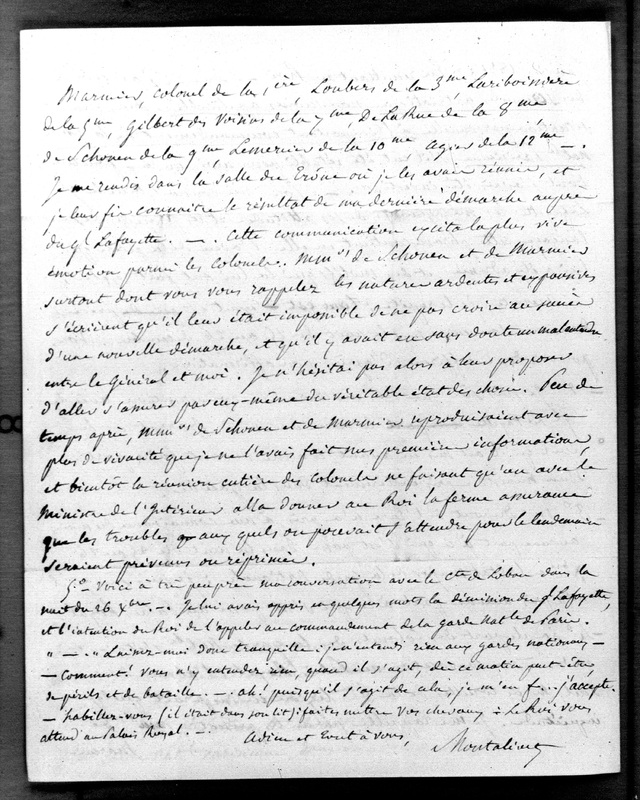 Marmier, colonel de la 1ère, Loubers de la 3me, Lariboissière
de la 5me, Gilbert des Voisins de la 7me, De La Rue de la 8me
de Schonen de la 9me, Lemercier de la 10me Agier de la 12me —.
Je me rendis dans la salle du Trône où je les avais réunis, et
je leur fis connaitre le résultat de ma dernière démarche auprès
du gl Lafayette. —. Cette communication excita la plus vive
émotion parmi les colonels. Mmrs de Schonen et de Marmier
surtout dont vous vous rappelez les natures ardentes et expansives
s'écrièrent qu'il leur était impossible de ne pas croire au succès
d'une nouvelle démarche, et qu'il y avait eu sans doute un malentendu
entre le Général et moi. Je n'hésitai pas alors à leur proposer
d'aller s'assurer par eux-même du véritable état des choses. Peu de
temps après, Mmrs de Schonen et de Marmier reproduisaient avec
plus de vivacité que je ne l'avais fait mes premières informations,
et bientôt la réunion entière des colonels ne faisant qu'un avec le
Ministre de l'Intérieur alla donner au Roi la ferme assurance
que les troubles aux quels on pouvait s'attendre pour le lendemain
seraient prévenus ou réprimés.
5.o Voici à très peu près ma conversation avec le Cte de Lobau dans la
nuit du 26 Xbre. —. Je lui avais appris en quelques mots la démission du gl Lafayette,
et l'intention du Roi de l'appeler au commandement de la garde Natle de Paris.
" — . " Laissez-moi donc tranquille : je n'entends rien aux gardes nationaux —
— Comment ! vous n'y entendez rien, quand il s'agit, dès ce matin peut-être
de périls et de bataille. — . ah ! puisqu'il s'agit de cela, je m'en f... j'accepte.
— habillez-vous (il était dans son lit) faites mettre vos chevaux : Le Roi vous
attend au Palais Royal. — .
Adieu et tout à vous,
Montalivet